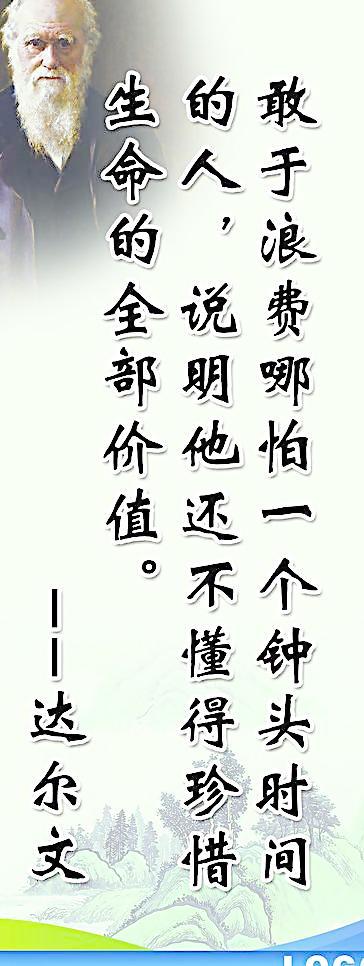 敢于浪费哪怕一个钟头时间
的人，说明他还不懂得珍惜
生命的全部价值。
——达尔文